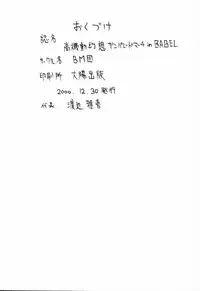 おくづけ
誌名
高機動幻想 アンパレードマーチ in BABEL
サークル名 BM団
印刷所 大陽出版
2000.12.30発行
代表